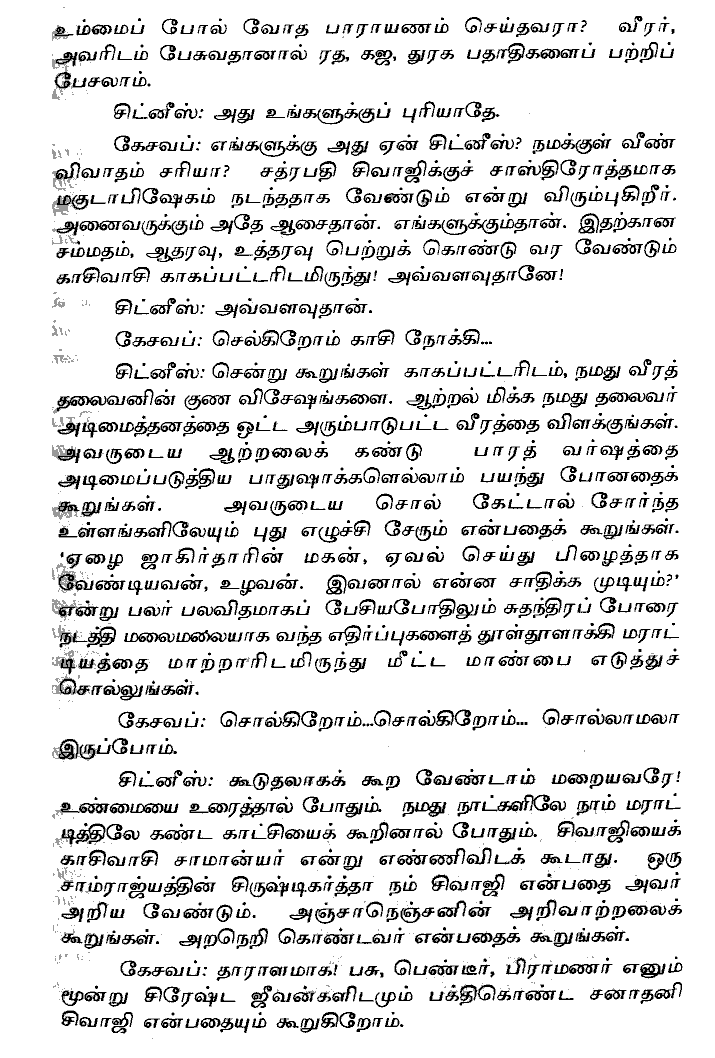 உம்மைப் போல் வேத பாராயணம் செய்தவரா? வீரர்,
அவரிடம் பேசுவதானால் ரத, கஜ, துரக பதாதிகளைப் பற்றிப்
பேசலாம்.
சிட்னீஸ்: அது உங்களுக்குப் புரியாதே.
கேசவப்: எங்களுக்கு அது ஏன் சிட்னீஸ்? நமக்குள் வீண்
விவாதம் சரியா? சத்ரபதி சிவாஜிக்குச் சாஸ்திரோத்தமாக
மகுடாபிஷேகம் நடந்ததாக வேண்டும் என்று விரும்புகிறீர்.
அனைவருக்கும் அதே ஆசைதான். எங்களுக்கும்தான். இதற்கான
சம்மதம், ஆதரவு, உத்தரவு பெற்றுக் கொண்டு வர வேண்டும்
காசிவாசி காகப்பட்டரிடமிருந்து! அவ்வளவுதானே!
சிட்னீஸ்: அவ்வளவுதான்.
கேசவப்: செல்கிறோம் காசி நோக்கி...
சிட்னீஸ்: சென்று கூறுங்கள் காகப்பட்டரிடம், நமது வீரத்
தலைவனின் குண விசேஷங்களை. ஆற்றல் மிக்க நமது தலைவர்
அடிமைத்தனத்தை ஒட்ட அரும்பாடுபட்ட வீரத்தை விளக்குங்கள்.
அவருடைய ஆற்றலைக் கண்டு பாரத் வர்ஷத்தை
அடிமைப்படுத்திய பாதுஷாக்களெல்லாம் பயந்து போனதைக்
கூறுங்கள். அவருடைய சொல் கேட்டால் சோர்ந்த
உள்ளங்களிலேயும் புது எழுச்சி சேரும் என்பதைக் கூறுங்கள்.
'ஏழை ஜாகிர்தாரின் மகன், ஏவல் செய்து பிழைத்தாக
வேண்டியவன், உழவன். இவனால் என்ன சாதிக்க முடியும்?'
என்று பலர் பலவிதமாகப் பேசியபோதிலும் சுதந்திரப் போரை
நடத்தி மலைமலையாக வந்த எதிர்ப்புகளைத் தூள்தூளாக்கி மராட்
டியத்தை மாற்றாரிடமிருந்து மீட்ட மாண்பை எடுத்துச்
சொல்லுங்கள்.
கேசவப்: சொல்கிறோம்...சொல்கிறோம்... சொல்லாமலா
இருப்போம்.
சிட்னீஸ்: கூடுதலாகக் கூற வேண்டாம் மறையவரே!
உண்மையை உரைத்தால் போதும். நமது நாட்களிலே நாம் மராட்
டித்திலே கண்ட காட்சியைக் கூறினால் போதும். சிவாஜியைக்
காசிவாசி சாமான்யர் என்று எண்ணிவிடக் கூடாது. ஒரு
சாம்ராஜ்யத்தின் சிருஷ்டிகர்த்தா நம் சிவாஜி என்பதை அவர்
அறிய வேண்டும். அஞ்சாநெஞ்சனின் அறிவாற்றலைக்
கூறுங்கள். அறநெறி கொண்டவர் என்பதைக் கூறுங்கள்.
கேசவப்: தாராளமாக! பசு, பெண்டீர், பிராமணர் எனும்
மூன்று சிரேஷ்ட ஜீவன்களிடமும் பக்திகொண்ட சனாதனி
சிவாஜி என்பதையும் கூறுகிறோம்.